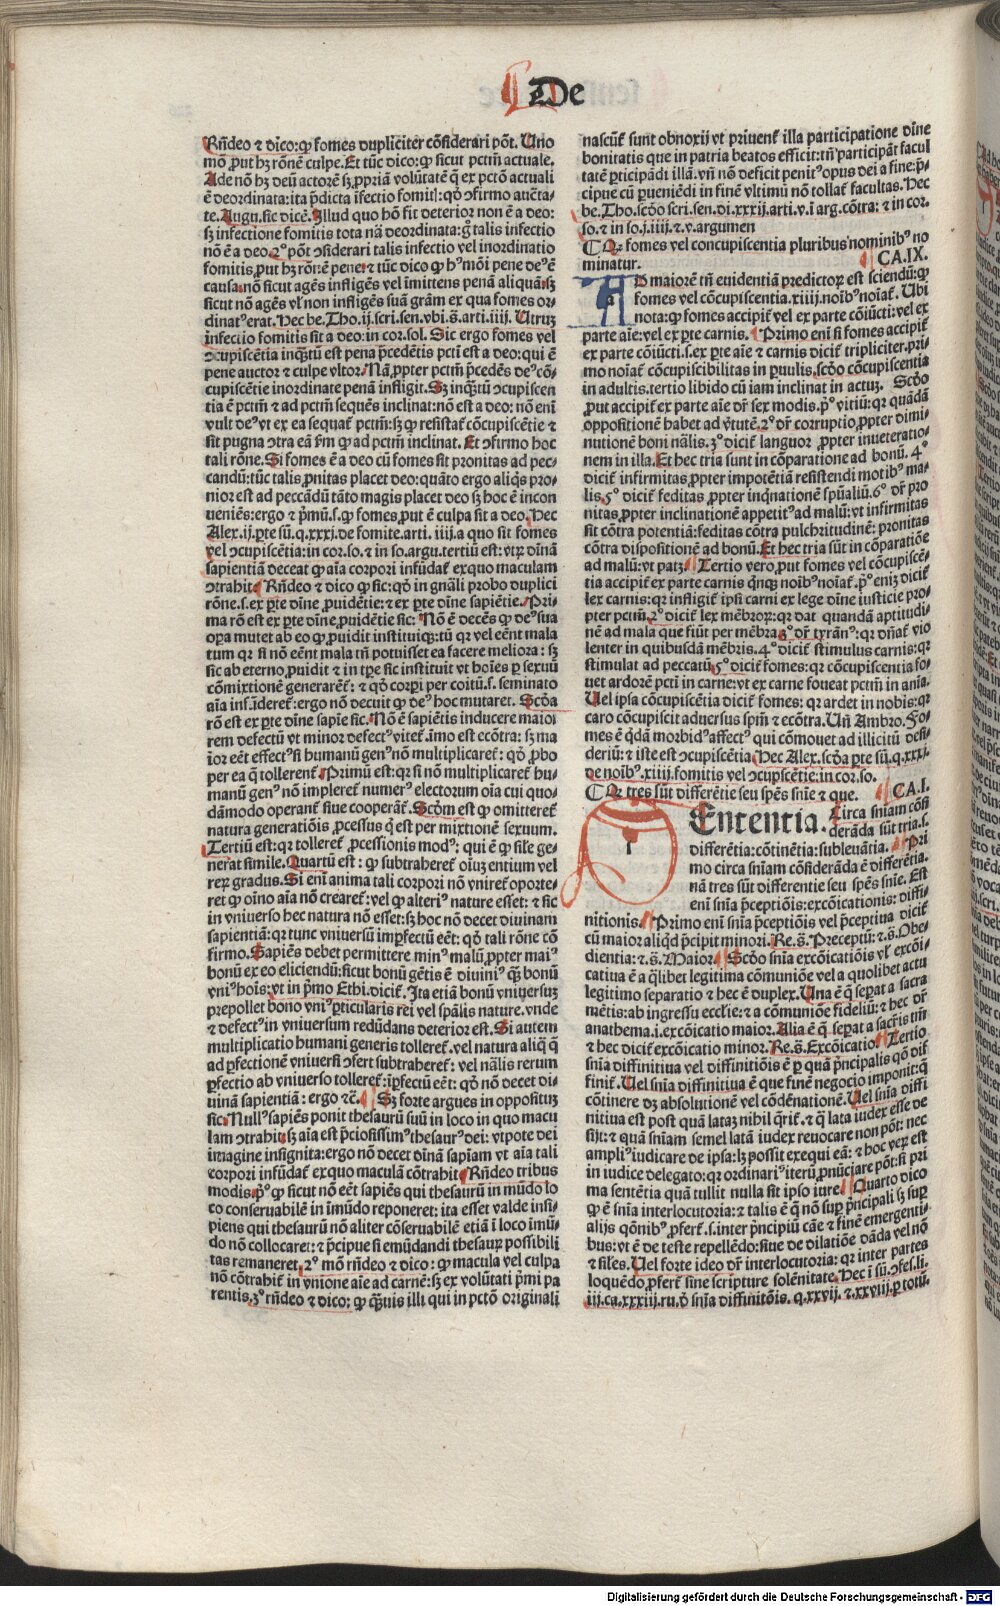 De
Rñdeo ⁊ dico:ꝙ fomes dupliciter cõsiderari põt. Uno
mõ ꝓut hꝫ rõnẽ culpe. Et tũc dico:ꝙ sicut pctm̃ actuale.
Ade nõ hꝫ deũ actorẽ sꝫ ꝓpriã volũtatẽ q̃ ex pctõ actuali
ẽ deordinata:ita p̃dicta ĩfectio fomitꝭ: qđ ↄfirmo auctã-
te. Augu. sic dicẽ. Illud quo hõ fit deterior non ẽ a deo:
sꝫ infectione fomitis tota nã deordinata:g̃ talis infectio
nõ ẽ a deo. 2° põt ↄsiderari talis infectio vel inordinatio
fomitis ꝓut hꝫ rõnẽ pene: ⁊ tũc dico ꝙ hꝰmõi pene deꝰ ẽ
causa: nõ sicut agẽs infligẽs vel ĩmittens penã aliquã: sꝫ
sicut nõ agẽs vl̃ non infligẽs suã grãm ex qua fomes or/
dinatꝰ erat. Hec be. Tho. ij. scri. sen. vbi. s̃. arti. iiij. Utrũ
infectio fomitis sit a deo: in cor. sol. Sic ergo fomes vel
ↄcupiscẽtia inqꝫtũ est pena p̃cedẽtis pcti est a deo: qui ẽ
pene auctor ⁊ culpe vltor. Nã ꝓpter pctm̃ p̃cedẽs deꝰ cõ-
cupiscẽtie inordinate penã infligit. Sꝫ inqꝫtũ ↄcupiscen
tia ẽ pctm̃ ⁊ ad pctm̃ sequẽs inclinat: nõ est a deo: nõ eni
vult deꝰ vt ex ea sequať pctm̃: sꝫ ꝙ resistať cõcupiscẽtie ⁊
sit pugna ↄtra eã ẽm ꝙ ad pctm̃ inclinat. Et ↄfirmo hoc
tali rõne. Si fomes ẽ a deo cũ fomes sit pronitas ad pec-
candũ: tũc talis ꝓnitas placet deo: quãto ergo aliqs pro-
nior est ad peccãdũ tãto magis placet deo sꝫ hoc ẽ incon
ueniẽs: ergo ⁊ p̃mũ. s. ꝙ fomes ꝓut ẽ culpa sit a deo. Hec
Alex. ij. p̃te sũ. q. xxxj. de fomite. arti. iiij. a quo sit fomes
vel ↄcupiscẽtia: in cor. so. ⁊ in so. argu. tertiũ est: vtꝝ dinã
sapientiã deceat ꝙ aĩa corpori infũdať ex quo maculam
ↄtrahit. Rñdeo ⁊ dico ꝙ sic: qđ in gñali probo duplici
rõne. s. ex p̃te diñe ꝓuidẽtie: ⁊ ex p̃te diñe sapiẽtie. Pri-
ma rõ est ex p̃te diñe ꝓuidẽtie sic: Nõ ẽ decẽs ꝙ deꝰ sua
oꝑa mutet ab eo ꝙ ꝓuidit instituiqꝫ: tũ qꝛ vel eẽnt mala
tum qꝛ si nõ eẽnt mala tñ potuisset ea facere meliora: sꝫ
sic ab eterno ꝓuidit ⁊ in tꝑe sic instituit vt hoĩes ꝑ sexuũ
cõmixtionẽ generareñť: ⁊ qđ corꝑi per coitũ. s. seminato
aĩa infũdereť: ergo nõ decuit ꝙ deꝰ hoc mutaret. Scđa
rõ est ex p̃te diñe sapiẽ sic. Nõ ẽ sapiẽtis inducere maior
rem defectũ vt minor defectꝰ viteť. ĩmo est ecõtra: sꝫ ma
ior eẽt effectꝰ si humanũ genꝰ nõ multiplicareť: qđ ꝓbo
per ea q̃ tollereñť. Primũ est: qꝛ si nõ multiplicareť hu-
manũ genꝰ nõ impleret numerꝰ electorum oĩa cui quo-
dãmodo operant siue cooperãt. Scđm est ꝙ omittereť
natura generatiõis ꝓcessus q̃ est per mixtionẽ sexuum.
Tertiũ est: qꝛ tolereť ꝓcessionis modꝰ: qui ẽ ꝙ sil̃e ge-
nerat simile. Quartũ est: ꝙ subtrahereť oĩuꝫ entium vel
reꝝ gradus. Si eni anima tali corpori nõ vnireť oporte-
ret ꝙ oĩno aĩa nõ creareť: vel ꝙ alteriꝰ nature esset: ⁊ sic
in vniuerso hec natura nõ esset: sꝫ hoc nõ decet diuinam
sapientiã: qꝛ tunc vniuersũ imꝑfectũ eẽt: qđ tali rõne cõ
firmo. Sapiẽs debet permittere minꝰ malũ ꝓpter maiꝰ
bonũ ex eo eliciendũ: sicut bonũ gẽtis ẽ diuiniꝰ qꝫ bonũ
vniꝰ hoĩs: vt in p̃mo Ethi. diciť. Ita etiã bonũ vniuersuꝫ
prepollet bono vniꝰ ꝑticularis rei vel sp̃alis nature. vnde
⁊ defectꝰ in vniuersum redũdans deterior est. Si autem
multiplicatio humani generis tollereť. vel natura aliq̃ q̃
ad ꝑfectionẽ vniuersi ↄfert subtrahereť: vel nãlis rerum
ꝑfectio ab vniuerso tollereť: iꝑfectũ eẽt: qđ nõ decet di-
uinã sapientiã: ergo ⁊c̃. Sꝫ forte argues in oppositũ
sic. Nullꝰ sapiẽs ponit thesaurũ suũ in loco in quo macu
lam ↄtrahit: sꝫ aĩa est p̃ciosissimꝰ thesaurꝰ dei: vtpote dei
imagine insignita: ergo nõ decet dinã sapiam vt aĩa tali
corpori infũdať ex quo maculã cõtrahit. Rñdeo tribus
modis. p̃° ꝙ sicut nõ eẽt sapiẽs qui thesaurũ in mũdo lo
co conseruabilẽ in ĩmũdo reponeret: ita esset valde insi-
piens qui thesaurũ nõ aliter cõseruabilẽ etiã ĩ loco imũ-
do nõ collocaret: ⁊ p̃cipue si emũdandi thesaurꝝ possibili
tas remaneret. 2° mõ rñdeo ⁊ dico: ꝙ macula vel culpa
nõ cõtrahiť in vnione aĩe ad carnẽ: sꝫ ex volũtati p̃mi pa
rentis. 3° rñdeo ⁊ dico: ꝙ qꝫuis illi qui in pctõ originali
nascũť sunt obnoxij vt priuenť illa participatione diñe
bonitatis que in patria beatos efficit: tñ participãt facul
tatẽ ꝑticipãdi illã. vñ nõ deficit penitꝰ opus dei a fine: p̃-
cipue cũ ꝑueniẽdi in finẽ vltimũ nõ tollať facultas. Hec
be. Tho. scđo scri. sen. di. xxxij. arti. v. ĩ arg. cõtra: ⁊ in cor.
so. ⁊ in so. j. iiij. ⁊ v. argumen
Qꝛ fomes vel concupiscentia pluribus nominibꝰ no
minatur. CA. IX.
AD maiorẽ tñ euidentiã predictorꝝ est sciendũ: ꝙ
fomes vel cõcupiscentia. xiiij. noĩbꝰ noĩať. Ubi
nota: ꝙ fomes accipiť vel ex parte cõiũcti: vel ex
parte aĩe: vel ex p̃te carnis. Primo eni si fomes accipiť
ex parte cõiũcti. s. ex p̃te aĩe ⁊ carnis diciť tripliciter. pri-
mo noĩať cõcupiscibilitas in ꝑuulis. scđo cõcupiscentia
in adultis. tertio libido cũ iam inclinat in actuꝫ. Scđo
ꝓut accipiť ex parte aĩe dr̃ sex modis. p̃° vitiũ: qꝛ quãdã
oppositionẽ habet ad ṽtutẽ. 2° dr̃ corruptio ꝓpter dimi-
nutionẽ boni nãlis. 3° diciť languor ꝓpter inueteratio-
nem in illa. Et hec tria sunt in cõparatione ad bonũ. 4°
diciť infirmitas ꝓpter impotẽtiã resistendi motibꝰ ma-
lis. 5° diciť feditas ꝓpter inqnationẽ sp̃ualiũ. 6° dr̃ pro
nitas ꝓpter inclinationẽ appetitꝰ ad malũ: vt infirmitas
sit cõtra potentiã: feditas cõtra pulchritudinẽ: pronitas
cõtra dispositionẽ ad bonũ. Et hec tria sũt in cõparatiõe
ad malũ: vt patꝫ. Tertio vero ꝓut fomes vel cõcupiscẽ-
tia accipiť ex parte carnis qnqꝫ noĩbꝰ noĩať. p̃° eniꝫ diciť
lex carnis: qꝛ infligiť ipsi carni ex lege diñe iusticie pro-
pter pctm̃. 2° diciť lex mẽbrorꝝ: qꝛ dat quandã aptitudi-
nẽ ad mala que fiũt per mẽbra. 3° dr̃ tyrãnꝰ: qꝛ dñať vio
lenter in quibusdã mẽbris. 4° diciť stimulus carnis: qꝛ
stimulat ad peccatũ. 5° diciť fomes: qꝛ cõcupiscentia fo-
uet ardorẽ pcti in carne: vt ex carne foueat pctm̃ in aĩa.
Uel ipsa cõcupiscẽtia diciť fomes: qꝛ ardet in nobis: qꝛ
caro cõcupiscit aduersus spm̃ ⁊ ecõtra. Uñ Ambro. Fo-
mes ẽ q̃dã morbidꝰ affectꝰ qui cõmouet ad illicitũ desi-
deriũ: ⁊ iste est ↄcupiscẽtia. Hec Alex. scđa p̃te sũ. q. xxxi.
de noĩbꝰ. xiiij. fomitis vel ↄcupiscẽtie: in cor. so.
Qꝛ tres sũt differẽtie seu sp̃es sñie ⁊ que. CA. I.
Ententia. Circa sñiam cõsi
derãda sũt tria. s.
differẽtia: cõtinẽtia: subleuãtia. Pri
mo circa sñiam cõsiderãda ẽ differẽtia.
nã tres sũt differentie seu sp̃es sñie. Est
eni sñia p̃ceptiõis: excõicationis: diffi-
nitionis. Primo eni sñia p̃ceptiõis vel p̃ceptiua diciť
cũ maior aliqd p̃cipit minori. Re. s̃. Preceptũ: ⁊. s̃. Obe-
dientia: ⁊. s̃. Maior. Scđo sñia excõicatiõis vl̃ excõi-
catiua ẽ a q̃libet legitima cõmuniõe vel a quolibet actu
legitimo separatio ⁊ hec ẽ duplex. Una ẽ q̃ seꝑat a sacra
mẽtis: ab ingressu eccl̃ie: ⁊ a cõmuniõe fideliũ: ⁊ hec dr̃
anathema. i. excõicatio maior. Alia ẽ q̃ seꝑat a sacris tm̃
⁊ hec diciť excõicatio minor. Re. s̃. Excõicatio. Tertio
sñia diffinitiua vel diffinitiõis ẽ ꝑ quã p̃ncipalis qõ dif-
finiť. Uel sñia diffinitiua ẽ que finẽ negocio imponit: q̃
cõtinere dꝫ absolutionẽ vel cõdẽnationẽ. Uel sñia diffi
nitiua est post quã lataꝫ nihil q̃riť. ⁊ q̃ lata iudex esse de
sijt: ⁊ quã sñiam semel latã iudex reuocare non põt: nec
ampliꝰ iudicare de ipsa: lꝫ possit exequi eã: ⁊ hoc veꝝ est
in iudice delegato: qꝛ ordinariꝰ iterũ ꝓnũciare põt: si pri
ma sentẽtia quã tullit nulla sit ipso iure. Quarto dico
ꝙ ẽ sñia interlocutoria: ⁊ talis ẽ q̃ nõ suꝑ p̃ncipali sꝫ suꝑ
alijs qõnibꝰ ꝓferť. s. inter p̃ncipiũ cãe ⁊ finẽ emergenti-
bus: vt ẽ de teste repellẽdo: siue de dilatiõe dãda vel nõ
⁊ sil̃es. Uel forte ideo dr̃ interlocutoria: qꝛ inter partes
loquẽdo ꝓferť sine scripture solẽnitate. Hec ĩ sũ. ↄfes. li.
iij. ca. xxxiij. ru. đ sñia diffinitõis. q. xxvij. ⁊. xxviij. ꝑ totũ.
Digitalisierung gefördert durch die Deutsche Forschungsgemeinschaft - DFG